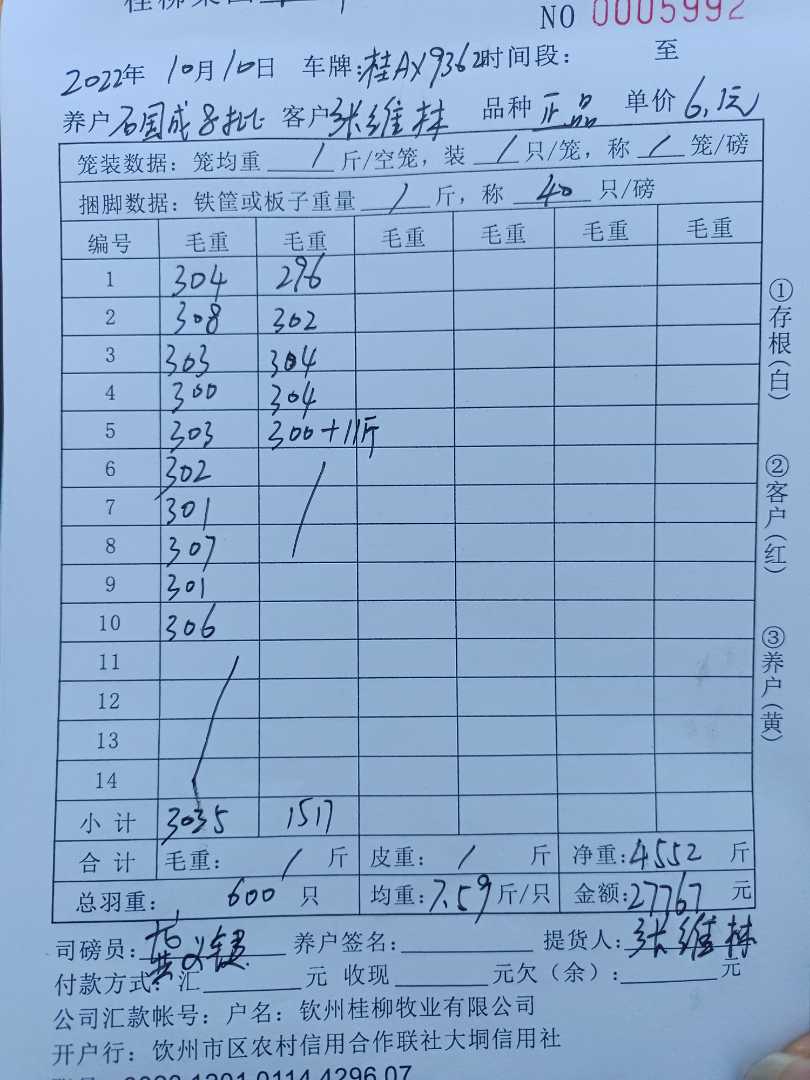 NO 0005992
2022年 10月10日 车牌:桂AX9362时间段: 至
养户 石国成8批 客户 张维林 品种 正品 单价 6.1元
笼装数据: 笼均重 / 斤/空笼, 装 / 只/笼, 称 / 笼/磅
捆脚数据: 铁筐或板子重量 / 斤, 称 40 只/磅
编号 毛重 毛重 毛重 毛重 毛重 毛重
1 304 296
2 308 302
3 303 304
4 300 304
5 303 300+11斤
6 302
7 301
8 307
9 301
10 306
11
12
13
14
小计 3035 1517
合计 毛重: / 斤 皮重: / 斤 净重:4552 斤
总羽重: 600 只 均重:7.59斤/只 金额:27767 元
司磅员: 养户签名: 提货人:张维林
付款方式: 汇 元 收现 元欠(余): 元
公司汇款帐号: 户名: 钦州桂柳牧业有限公司
开户行: 饮州市区农村信用合作联社大垌信用社
①存根(白)
②客户(红)
③养户(黄)